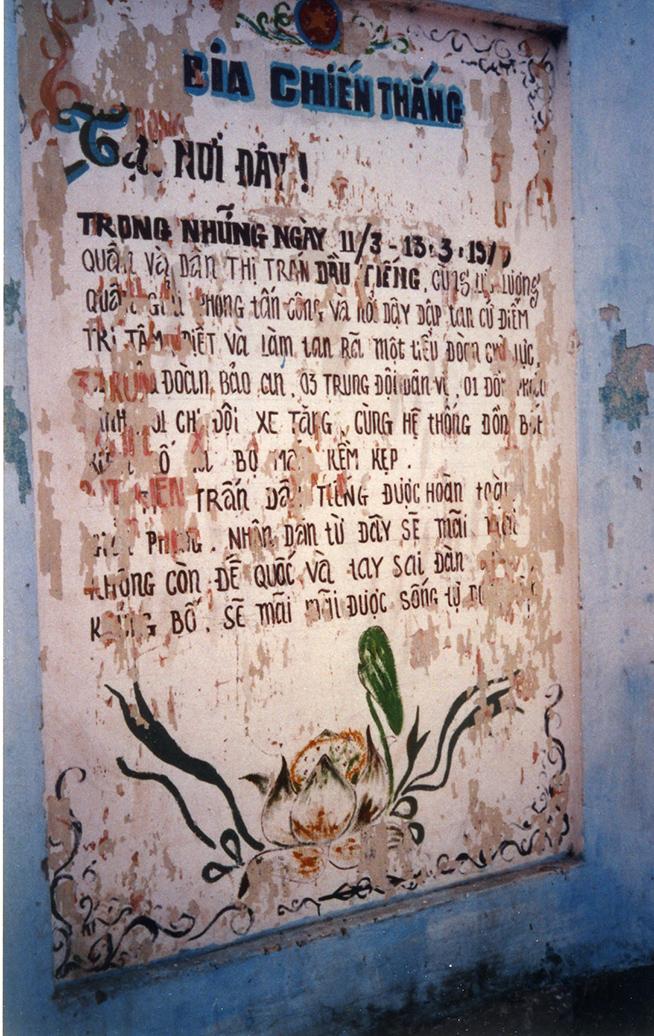 BIA CHIẾN THẮNG
Tại NƠI ĐÂY !
TRONG NHỮNG NGÀY 11/3 - 13.3.197
QUÂN và DÂN THỊ TRẤN DẦU TIẾNG, cùng LựC Lượng
QUÂN GIẢI PHÓNG tấn công và nổi DẬY ĐẬP tan CỨ ĐIỂM
TRỊ TÂM, DIỆT và làm tan RÃ một tiểu Đoàn CHủ lực,
ĐOÀN BẢO an, 03 TRUNG ĐỘI DÂN vệ, 01 ĐỘI PHÁO
BINH, 01 CHI ĐỘI XE TĂNG, CÙNG HỆ THỐNG ĐỒN BốT
BỘ MÁY KỀM KẸP.
TRẤN DẦU TIẾNG ĐƯỢC HOÀN toàn
GIẢI PHÓNG. NHÂN DÂN từ ĐÂY SẼ mãi mãi
KHÔNG CÒN ĐẾ QUỐC và tay sai ĐÀN
KHỦNG BỐ. SẼ mãi mãi ĐƯỢC SỐNG tự